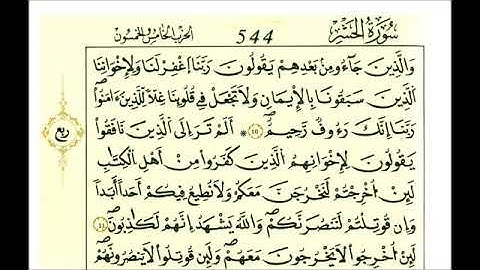 سُورَةُ الْحَشْرِ 544 الحزب الخامس والخمسون
وَالَّذِينَ جَآءُو مِنْ بَعْدِهِمْ يَقُولُونَ رَبَّنَا اَغْفِرْ لَنَا وَلِإِخْوَانِنَا
الَّذِينَ سَبَقُونَا بِالْإِيمَانِ وَلَا تَجْعَلْ فِي قُلُوبِنَا غِلًّا لِّلَّذِينَ ءَامَنُواْ
رَبَّنَآ إِنَّكَ رَءُوفٌ رَّحِيمٌ ١٠ * أَلَمْ تَرَ إِلَى الَّذِينَ نَافَقُوا
يَقُولُونَ لِإِخْوَانِهِمُ الَّذِينَ كَفَرُوا مِنْ أَهْلِ الْكِتَابِ
لَئِنْ أُخْرِجْتُمْ لَنَخْرُجَنَّ مَعَكُمْ وَلَا نُطِيعُ فِيكُمْ أَحَدًا أَبَدًا
وَإِن قُوتِلْتُمْ لَنَنصُرَنَّكُمْ وَاللَّهُ يَشْهَدُ إِنَّهُمْ لَكَاذِبُونَ ١١
لَئِنْ أُخْرِجُوا لَا يَخْرُجُونَ مَعَهُمْ وَلَئِن قُوتِلُوا لَا يَنصُرُونَهُمْ
ربع